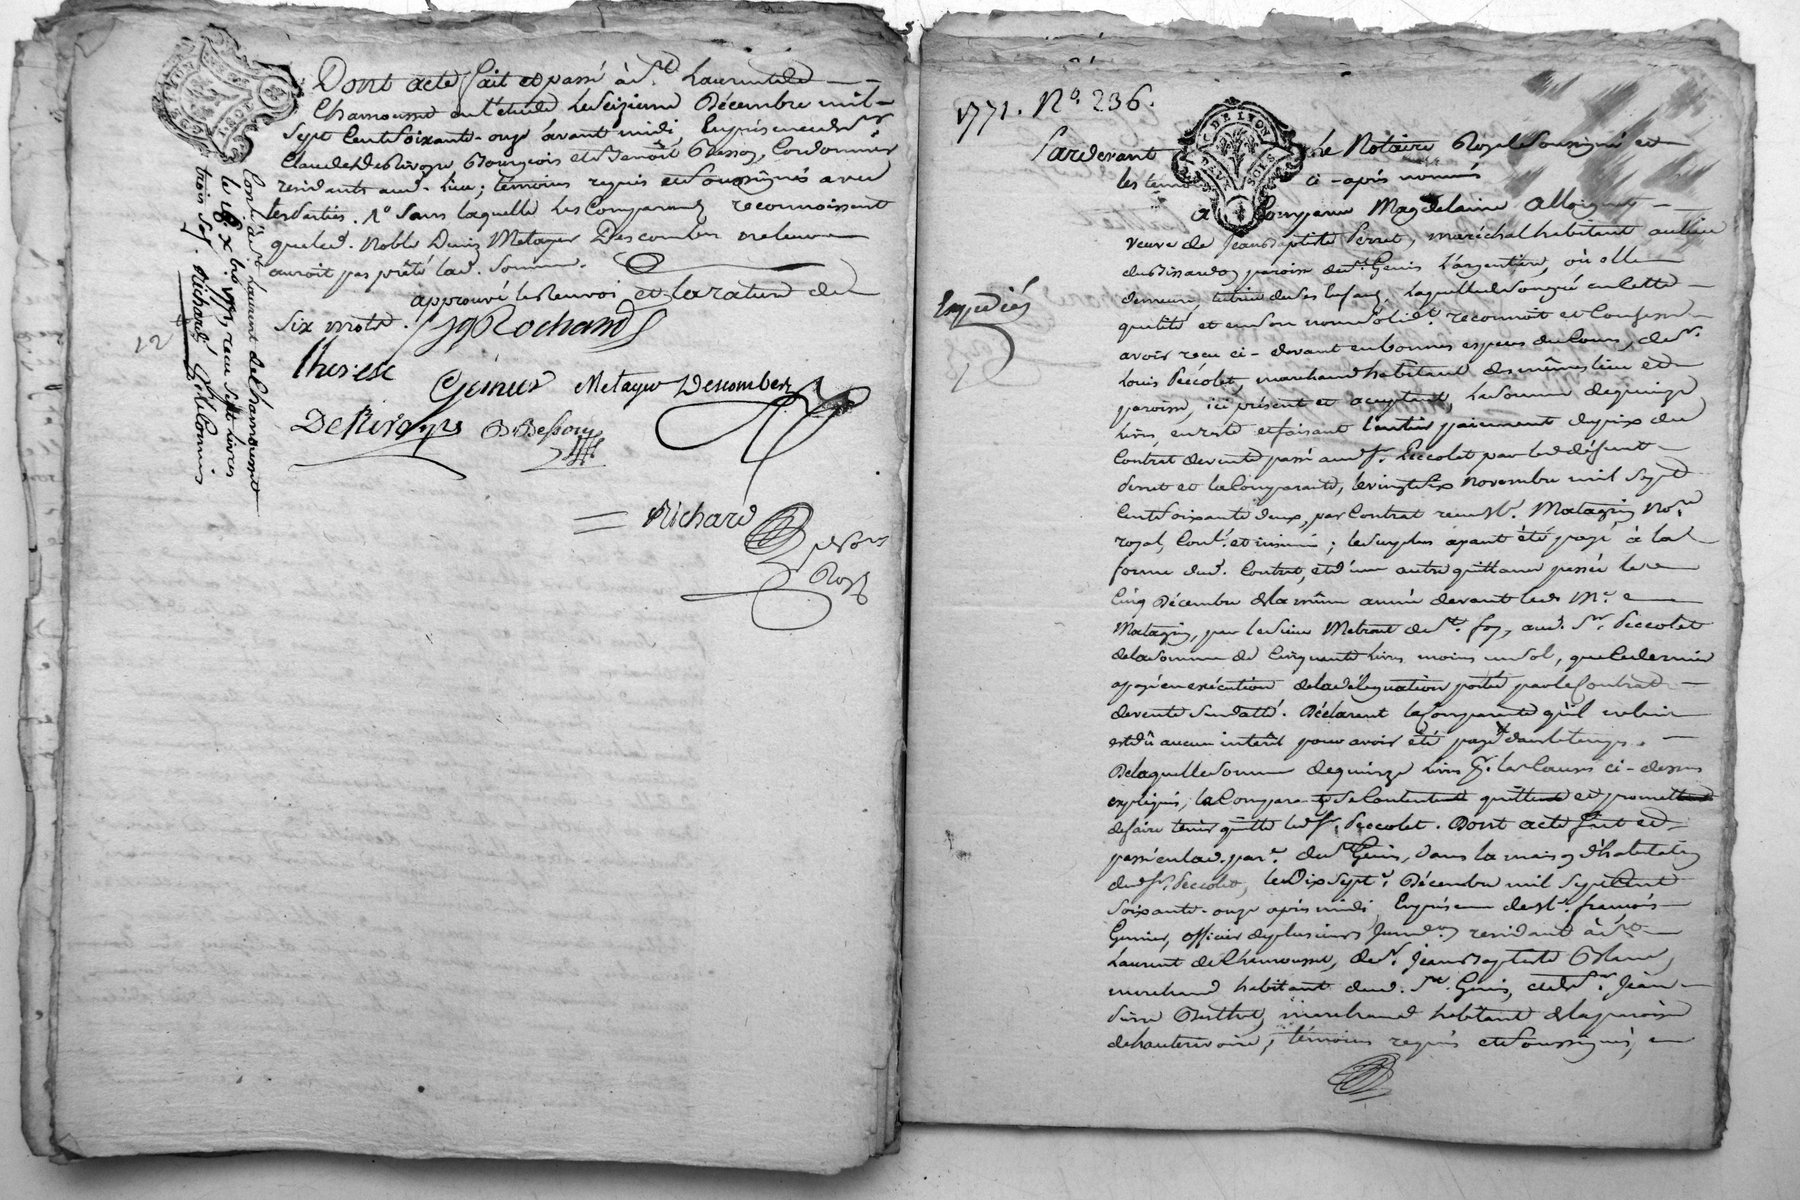 Dont acte fait et passé à St. Laurent de
Chamousset en l'étude le seizieme Décembre mil
sept cent soixante-onze avant midi, En présence de Srs
Claude DeRivoyre Bourgeois et Benoît Bessoy, Cordonnier
residants aud. lieu; témoins requis et soussignés avec
les Parties. sans laquelle les Comparants reconnoissent
que led. Noble Denis Metayer Descombes ne leur
auroit pas prêté lad. somme.
approuvé le Renvoi et la rature de
six mots. JgRochand
therese
Grenier Metayer Descombes
DeRivoyre B Bessoy
Richard
No. Roy.
Conl. à St. Laurent de Chamousset
le 18. xbre 1771, reçu sept livres
trois sols. Richard
12
GEN. DE LYON
DEUX SOLS
1771. No. 236.
Pardevant le Notaire Royal soussigné et
les témoins ci-après nommés
a Comparu Magdelaine
veuve de Jean Baptiste Perret, maréchal habitant au lieu
du paroisse de St. Genis L'argentiere, où elle
demeure, tutrice de ses Enfans, Laquelle de son gré en cette
qualité et en son nom solid. reconnoît et confesse
avoir reçu ci-devant en bonnes especes du Cours, de Sr.
Louis Peccolet, marchand habitant des mêmes lieu et
paroisse, ici présent et acceptant, La somme de quinze
livres, en reste et faisant l'entier paiement du prix du
Contrat de vente passé aud. Sr. Peccolet par led. défunt
Perret et la Comparante, le vingt six Novembre mil sept
Cent soixante deux, par Contrat reçu Me. Matagrin Nore.
royal, Conl. et insinué; le surplus ayant été payé à la
forme dud. Contrat, et d'une autre quittance passée le
Cinq Décembre de la même année devant led. Me.
Matagrin, par le sieur Metrat de St. foy, aud. Sr. Peccolet
de la somme de Cinquante livres moins un sol, que ce dernier
a payé en exécution de la délégation portée par le Contrat
de vente susdatté. Déclarant la Comparante qu'il ne lui
est dû aucun intérêt pour avoir été payée dans le temps.
De laquelle somme de quinze livres pr. les Causes ci-dessus
expliquées, la Comparante se Contente quitte et promet
de faire tenir quitte led. Sr. Peccolet. Dont acte fait et
passé en lad. par. de St. Genis, dans la maison d'habitation
dud. Sr. Peccolet, le Dix Sept. Décembre mil sept Cent
soixante-onze après midi, En présence de Me. françois
Grenier, officier de plusieurs Juridons résidant à St.
Laurent de Chamousset, de Sr. Jean Baptiste
marchand habitant dud. St. Genis, et de Sr. Jean
Pierre Berthet, marchand habitant de la paroisse
de hauterivoire; témoins requis et soussignés, en
Expédiés